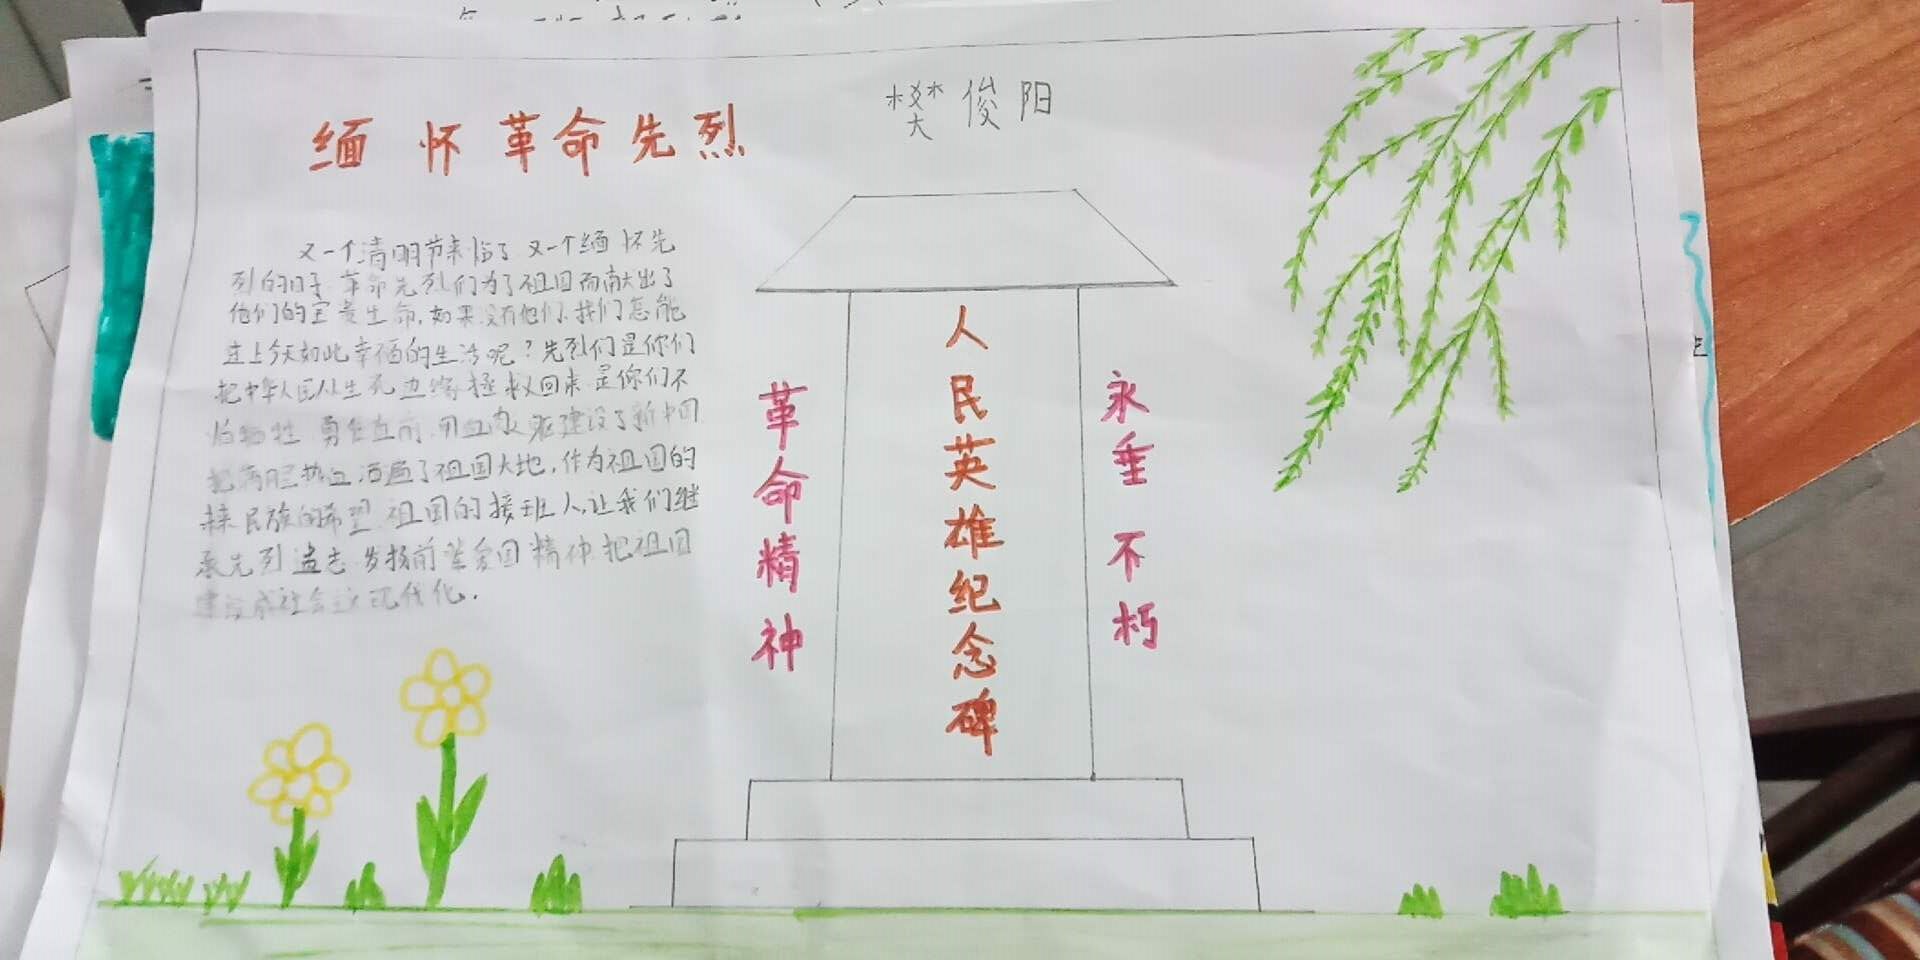 缅怀革命先烈
樊俊阳
又一个清明节来临了 又一个缅怀先
烈的日子 革命先烈们为了祖国而献出了
他们的宝贵生命,如果没有他们、我们怎能
过上今天如此幸福的生活呢?先烈们是你们
把中华人民从生死边缘拯救回来 是你们不
怕牺牲 勇往直前 用血肉 建设了新中国
把满腔热血洒遍了祖国大地,作为祖国的
未来 民族的希望 祖国的接班人,让我们继
承先烈遗志 发扬前辈爱国精神 把祖国
建设成社会 现代化.
革命精神
人民英雄纪念碑
永垂不朽